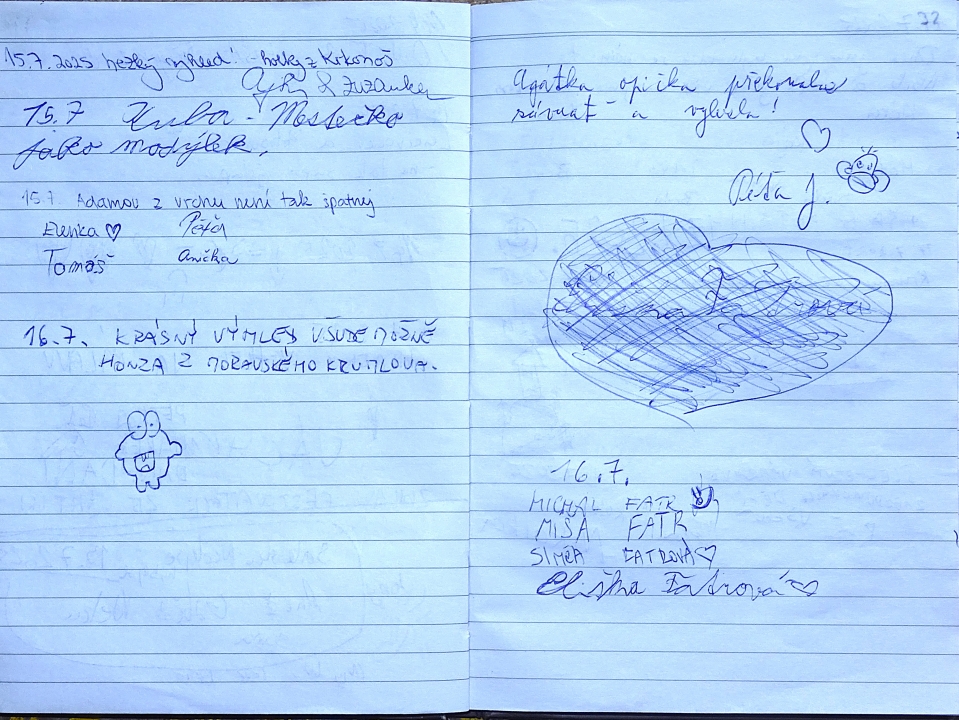 15.7.2025 hezký výhled! - holky z Krkonoš
& Zuzanka
15.7 Kuba - Městečko
jako motýlek.
15.7 Adamov z vrchu není tak špatnej
Elenka ♡ Péťa
Tomáš Anička
16.7. KRÁSNÝ VÝHLED VŠUDE MOŽNĚ
HONZA Z MORAVSKÉHO KRUMLOVA.
32
Agátka opička překonala
závrať a vylezla!
Péťa J.
16.7.
MICHAL FATR
MÍŠA FATR
SIMČA FATROVÁ ♡
Eliška Fatrová ♡